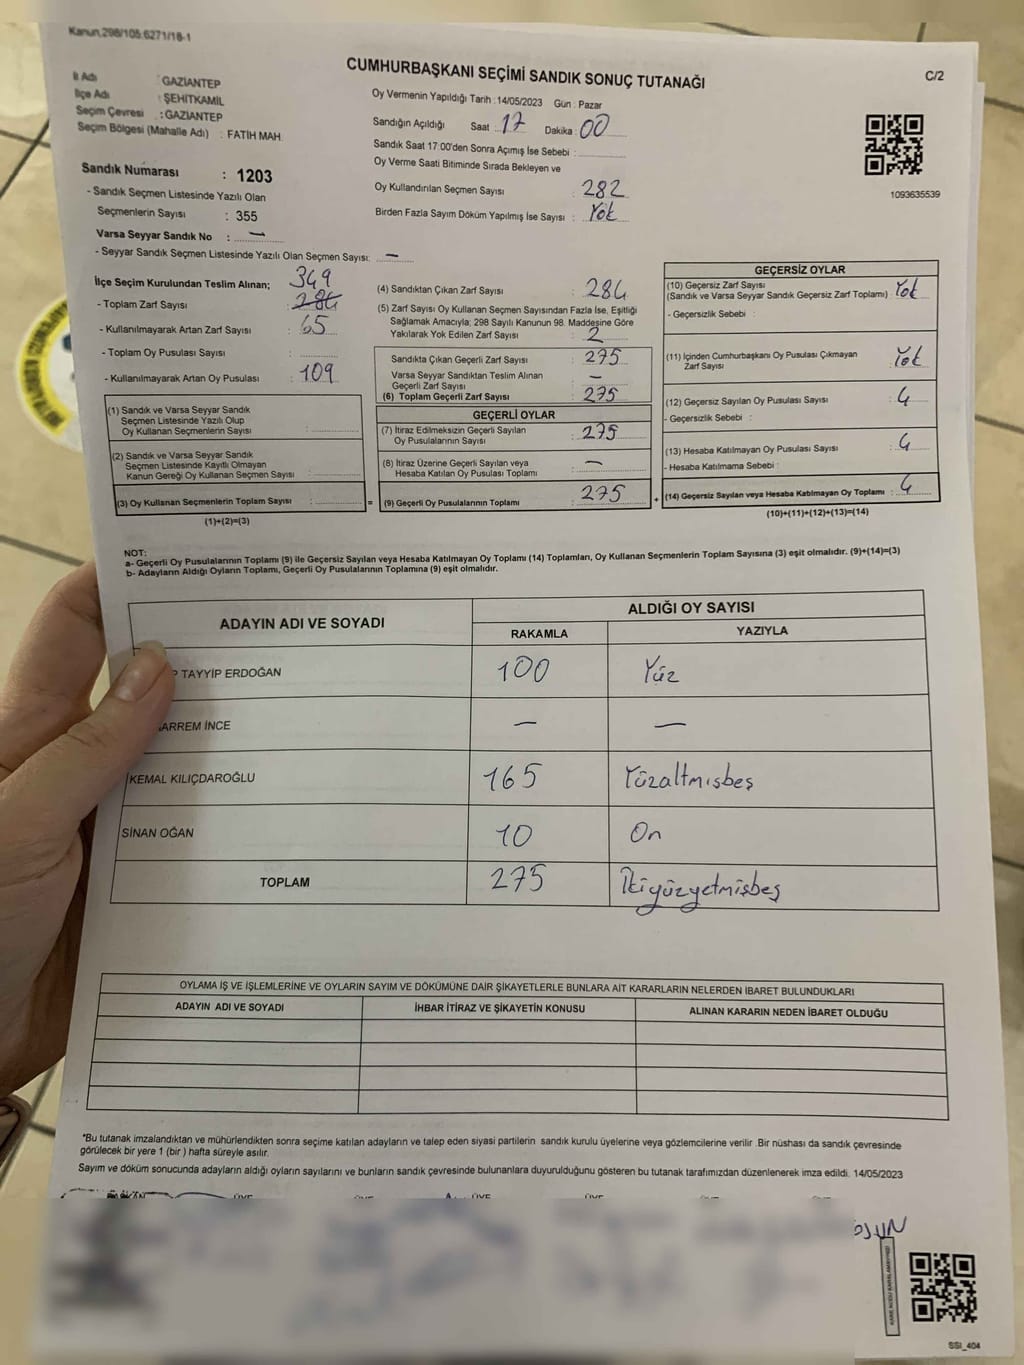 Kanun,298/105.6271/18-1
CUMHURBAŞKANI SEÇİMİ SANDIK SONUÇ TUTANAĞI
C/2
İl Adı : GAZİANTEP
İlçe Adı : ŞEHİTKAMİL
Seçim Çevresi : GAZİANTEP
Seçim Bölgesi (Mahalle Adı) : FATİH MAH.
Sandık Numarası : 1203
- Sandık Seçmen Listesinde Yazılı Olan
Seçmenlerin Sayısı : 355
Varsa Seyyar Sandık No : —
- Seyyar Sandık Seçmen Listesinde Yazılı Olan Seçmen Sayısı: —
Oy Vermenin Yapıldığı Tarih :14/05/2023 Gün : Pazar
Sandığın Açıldığı Saat : 17 Dakika : 00
Sandık Saat 17:00'den Sonra Açımış İse Sebebi :
Oy Verme Saati Bitiminde Sırada Bekleyen ve
Oy Kullandırılan Seçmen Sayısı : 282
Birden Fazla Sayım Döküm Yapılmış İse Sayısı : Yok
1093635539
İlçe Seçim Kurulundan Teslim Alınan; 349
- Toplam Zarf Sayısı : 284
- Kullanılmayarak Artan Zarf Sayısı : 65
- Toplam Oy Pusulası Sayısı :
- Kullanılmayarak Artan Oy Pusulası : 109
(1) Sandık ve Varsa Seyyar Sandık
Seçmen Listesinde Yazılı Olup
Oy Kullanan Seçmenlerin Sayısı :
(2) Sandık ve Varsa Seyyar Sandık
Seçmen Listesinde Kayıtlı Olmayan
Kanun Gereği Oy Kullanan Seçmen Sayısı :
(3) Oy Kullanan Seçmenlerin Toplam Sayısı : =
(1)+(2)=(3)
(4) Sandıktan Çıkan Zarf Sayısı : 284
(5) Zarf Sayısı Oy Kullanan Seçmen Sayısından Fazla İse, Eşitliği
Sağlamak Amacıyla; 298 Sayılı Kanunun 98. Maddesine Göre
Yakılarak Yok Edilen Zarf Sayısı : 2
Sandıkta Çıkan Geçerli Zarf Sayısı : 275
Varsa Seyyar Sandıktan Teslim Alınan
Geçerli Zarf Sayısı : —
(6) Toplam Geçerli Zarf Sayısı : 275
GEÇERLİ OYLAR
(7) İtiraz Edilmeksizin Geçerli Sayılan
Oy Pusulalarının Sayısı : 275
(8) İtiraz Üzerine Geçerli Sayılan veya
Hesaba Katılan Oy Pusulası Toplamı : —
(9) Geçerli Oy Pusulalarının Toplamı : 275 +
GEÇERSİZ OYLAR
(10) Geçersiz Zarf Sayısı
(Sandık ve Varsa Seyyar Sandık Geçersiz Zarf Toplamı) : Yok
- Geçersizlik Sebebi :
(11) İçinden Cumhurbaşkanı Oy Pusulası Çıkmayan
Zarf Sayısı : Yok
(12) Geçersiz Sayılan Oy Pusulası Sayısı : 4
- Geçersizlik Sebebi :
(13) Hesaba Katılmayan Oy Pusulası Sayısı : 4
- Hesaba Katılmama Sebebi :
(14) Geçersiz Sayılan veya Hesaba Katılmayan Oy Toplamı : 4
(10)+(11)+(12)+(13)=(14)
NOT:
a- Geçerli Oy Pusulalarının Toplamı (9) ile Geçersiz Sayılan veya Hesaba Katılmayan Oy Toplamı (14) Toplamları, Oy Kullanan Seçmenlerin Toplam Sayısına (3) eşit olmalıdır. (9)+(14)=(3)
b- Adayların Aldığı Oyların Toplamı, Geçerli Oy Pusulalarının Toplamına (9) eşit olmalıdır.
ADAYIN ADI VE SOYADI
ALDIĞI OY SAYISI
RAKAMLA YAZIYLA
P TAYYİP ERDOĞAN 100 Yüz
ARREM İNCE — —
KEMAL KILIÇDAROĞLU 165 Yüzaltmışbeş
SİNAN OĞAN 10 On
TOPLAM 275 İkiyüzyetmişbeş
OYLAMA İŞ VE İŞLEMLERİNE VE OYLARIN SAYIM VE DÖKÜMÜNE DAİR ŞİKAYETLERLE BUNLARA AİT KARARLARIN NELERDEN İBARET BULUNDUKLARI
ADAYIN ADI VE SOYADI İHBAR İTİRAZ VE ŞİKAYETİN KONUSU ALINAN KARARIN NEDEN İBARET OLDUĞU
*Bu tutanak imzalandıktan ve mühürlendikten sonra seçime katılan adayların ve talep eden siyasi partilerin sandık kurulu üyelerine veya gözlemcilerine verilir .Bir nüshası da sandık çevresinde
görülecek bir yere 1 (bir ) hafta süreyle asılır.
Sayım ve döküm sonucunda adayların aldığı oyların sayılarını ve bunların sandık çevresinde bulunanlara duyurulduğunu gösteren bu tutanak tarafımızdan düzenlenerek imza edildi. 14/05/2023
SSI_404